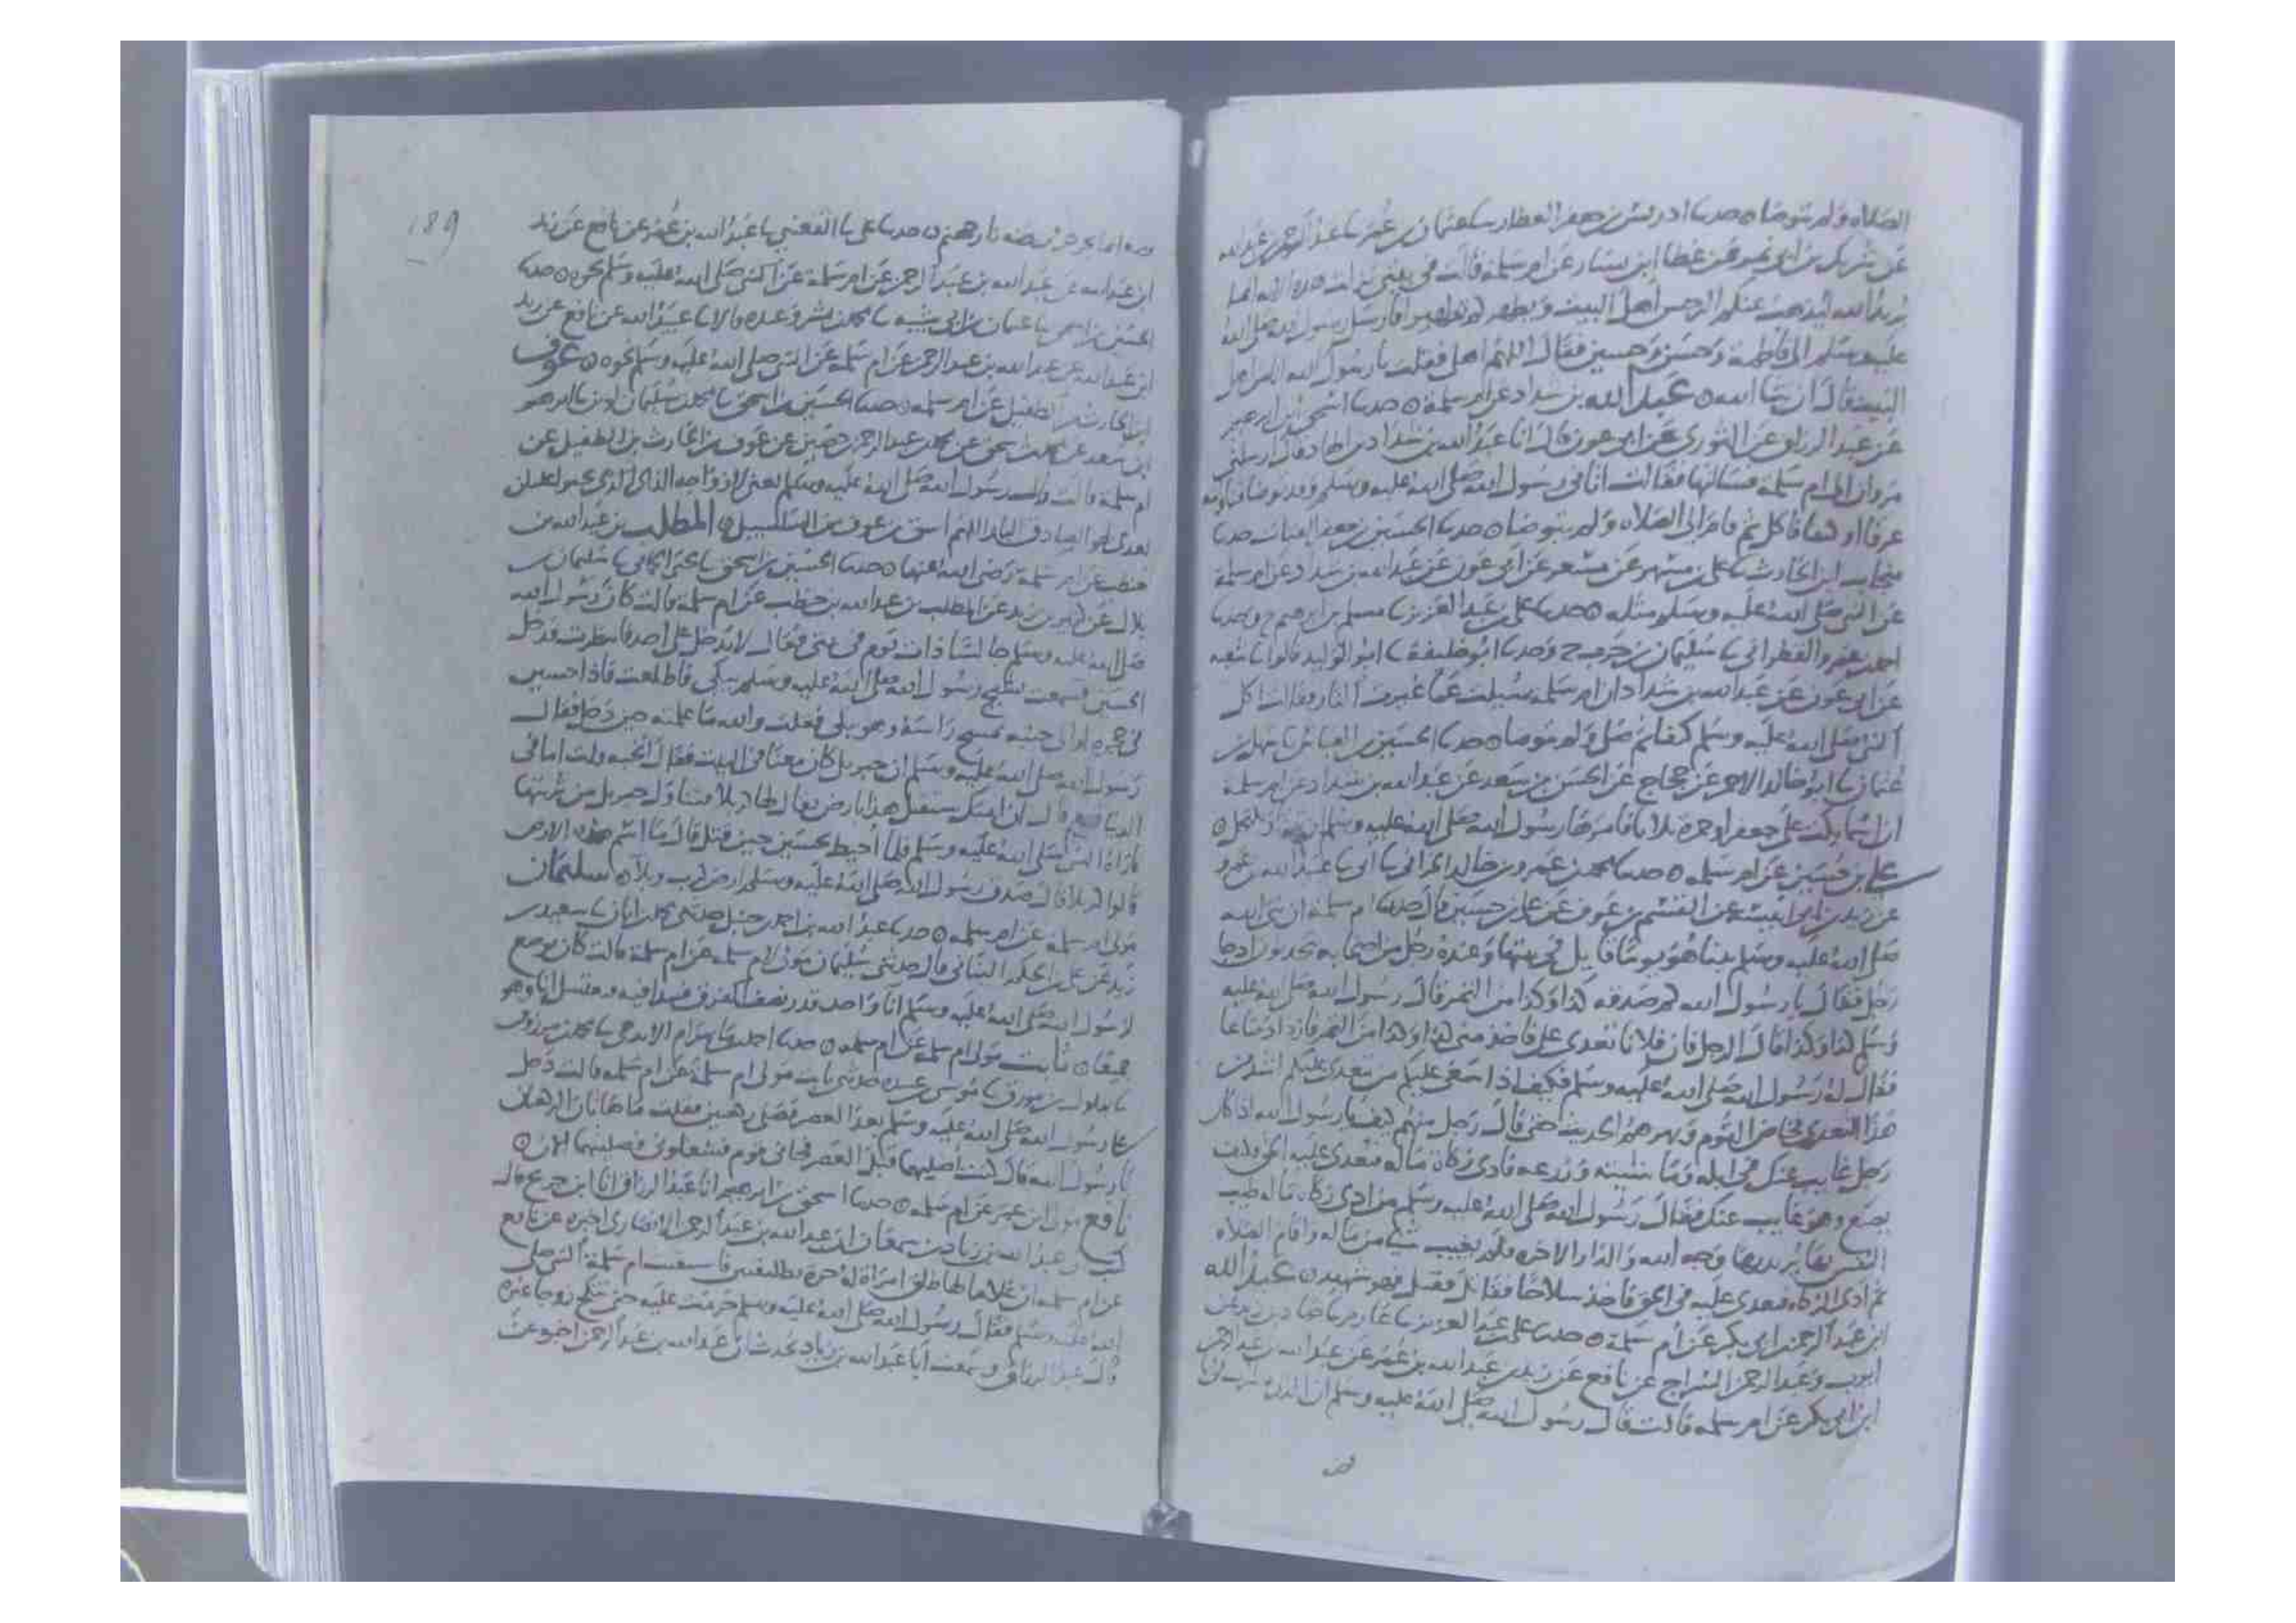 الصلاه ولم يتوضا ه حدثنا ادريس بن جعفر العطار ثنا عثمان بن عمر ثنا عبد الرحمن بن عبد الله
عن شريك بن ابي نمر عن عطا ابن يسار عن ام سلمة قالت في بيتي نزلت هذه الايه انما
يريد الله ليذهب عنكم الرجس اهل البيت ويطهركم تطهيرا فارسل رسول الله صلى الله
عليه وسلم الى فاطمة وحسن وحسين فقال اللهم اهلي فقلت يا رسول الله انا من اهل
البيت قال ان شا الله ه عبد الله بن شداد عن ام سلمة ه حدثنا اسحق ابن ابرهيم
عن عبد الرزاق عن الثوري عن ابي عون قال انا عبد الله بن شداد بن الهاد قال ارسلني
مروان الى ام سلمة فسالتها فقالت اتاني رسول الله صلى الله عليه وسلم وقد توضا فناولته
عرقا او كتفا فاكل ثم قام الى الصلاه ولم يتوضا ه حدثنا الحسين بن جعفر القتات حدثنا
منجاب ابن الحارث ثنا علي بن مسهر عن مسعر عن ابي عون عن عبد الله بن شداد عن ام سلمة
عن النبي صلى الله عليه وسلم مثله ه حدثنا علي بن عبد العزيز ثنا مسلم بن ابرهيم ح وحدثنا
احمد بن عمرو القطراني ثنا سليمان بن حرب ح وحدثنا ابو خليفة ثنا ابو الوليد قالوا ثنا شعبه
عن ابي عون عن عبد الله بن شداد ان ام سلمة سيلت عما غيرت النار فقالت اكل
النبي صلى الله عليه وسلم كتفا ثم صلى ولم يتوضا ه حدثنا الحسين بن العباس ثنا سهل بن
عثمان ثنا ابو خالد الاحمر عن حجاج عن الحسن بن سعد عن عبد الله بن شداد عن ام سلمة
ان اسما بكت على جعفر او حمزة ثلاثا فامرها رسول الله صلى الله عليه وسلم ان
علي بن حسين عن ام سلمه ه حدثنا محمد بن عمرو بن خالد الحراني ثنا ابي ثنا عبيد الله بن عمرو
عن زيد بن ابي انيسة عن القسم بن عوف عن علي بن حسين قال حدثتنا ام سلمة ان نبي الله
صلى الله عليه وسلم بينا هو يوما قايل في بيتها وعنده رجل من اصحابه يتحدثون اذ جا
رجل فقال يا رسول الله كم صدقه كذا وكذا من التمر قال رسول الله صلى الله عليه
وسلم كذا وكذا قال الرجل فان فلانا تعدى علي فاخذ مني كذا وكذا من التمر فازداد صاعا
فقال له رسول الله صلى الله عليه وسلم فكيف اذا سعى عليكم من يتعدى عليكم اشد من
هذا التعدي فخاض القوم وبهرهم الحديث حتى قال رجل منهم كيف يا رسول الله اذا كان
رجل غايب عنك في ابله وماشيته وزرعه فادى زكاة ماله فتعدى عليه الحق فكيف
يصنع وهو غايب عنك فقال رسول الله صلى الله عليه وسلم من ادى زكاه ماله طيب
النفس بها يريد بها وجه الله والدار الاخره فلم يغيب شيا من ماله واقام الصلاه
ثم ادى الزكاه فتعدى عليه في الحق فاخذ سلاحا فقاتل فقتل فهو شهيد ه عبد الله
ابن عبد الرحمن ابن ابي بكر عن ام سلمة ه حدثنا علي بن عبد العزيز ثنا عارم ثنا حماد بن زيد عن
ايوب وعبد الرحمن السراج عن نافع عن زيد بن عبد الله بن عمر عن عبد الله بن عبد الرحمن
ابن ابي بكر عن ام سلمه قالت قال رسول الله صلى الله عليه وسلم ان الذي يشرب في انا
189
فضه انما يجرجر في بطنه نار جهنم ه حدثنا علي ثنا القعنبي ثنا عبد الله بن عمر عن نافع عن زيد
ابن عبد الله عن عبد الله بن عبد الرحمن عن ام سلمة عن النبي صلى الله عليه وسلم نحوه ه حدثنا
الحسين بن اسحق ثنا عثمان بن ابي شيبه ثنا محمد بن بشر وعبده قالا ثنا عبيد الله عن نافع عن زيد
ابن عبد الله عن عبد الله بن عبد الرحمن عن ام سلمة عن النبي صلى الله عليه وسلم نحوه ه عوف
ابن الحارث بن الطفيل عن ام سلمه ه حدثنا الحسين بن اسحق ثنا محمد بن سليمان لوين ثنا ابرهيم
ابن سعد عن محمد بن اسحق عن محمد بن عبد الرحمن بن حصين عن عوف بن الحارث بن الطفيل عن
ام سلمة قالت قال رسول الله صلى الله عليه وسلم يعني لازواجه ان الذي يحنوا عليكن
بعدي لهو الصادق البار اللهم اسق بن عوف من السلسبيل ه المطلب بن عبد الله بن
حنطب عن ام سلمة رضي الله عنها ه حدثنا الحسين بن اسحق ثنا يحيى الحماني ثنا سليمان بن
بلال عن كثير بن زيد عن المطلب بن عبد الله بن حنطب عن ام سلمة قالت كان رسول الله
صلى الله عليه وسلم جالسا ذات يوم في بيتي فقال لا يدخل علي احد فانتظرت فدخل
الحسين فسمعت نشيج رسول الله صلى الله عليه وسلم يبكي فاطلعت فاذا حسين
في حجره او الى جنبه يمسح راسه وهو يبكي فقلت والله ما علمته حين دخل فقال
رسول الله صلى الله عليه وسلم ان جبريل كان معنا في البيت فقال اتحبه قلت اما في
الدنيا فنعم قال ان امتك ستقتل هذا بارض يقال لها كربلا فتناول جبريل من تربتها
فاراه النبي صلى الله عليه وسلم فلما احيط بحسين حين قتل قال ما اسم هذه الارض
قالوا كربلا قال صدق رسول الله صلى الله عليه وسلم ارض كرب وبلا ه سليمان
مولى ام سلمة عن ام سلمه ه حدثنا عبد الله بن احمد بن حنبل حدثني محمد بن ابان ثنا سعيد بن
زيد عن علي بن الحكم البناني قال حدثني سليمان مولى ام سلمه عن ام سلمة قالت كان يوضع
لرسول الله صلى الله عليه وسلم انا واحد قدر نصف الفرق فيبدا فيه ونغتسل انا وهو
جميعا ه ثابت مولى ام سلمه عن ام سلمه ه حدثنا احمد بن بهرام الايذجي ثنا محمد بن مرزوق
ثنا بهلول بن مورق ثنا موسى بن عبيده حدثني ثابت مولى ام سلمة عن ام سلمه قالت دخل
علي رسول الله صلى الله عليه وسلم بعد العصر فصلى ركعتين فقلت ما هاتان الركعتان
يا رسول الله قال كنت اصليهما قبل العصر فجاني قوم فشغلوني فصليتهما الان ه
نافع مولى ابن عمر عن ام سلمه ه حدثنا اسحق بن ابرهيم انا عبد الرزاق انا ابن جريج قال
كتب الي عبد الله بن زياد بن سمعان ان عبد الله بن عبد الرحمن الانصاري اخبره عن نافع
عن ام سلمه ان غلاما لها طلق امراة له حرة تطليقتين فاستفتت ام سلمة النبي صلى
الله عليه وسلم فقال رسول الله صلى الله عليه وسلم حرمت عليه حتى تنكح زوجا غيره
قال عبد الرزاق وسمعت انا عبد الله بن زياد يحدث ان عبد الله بن عبد الرحمن اخبره عن